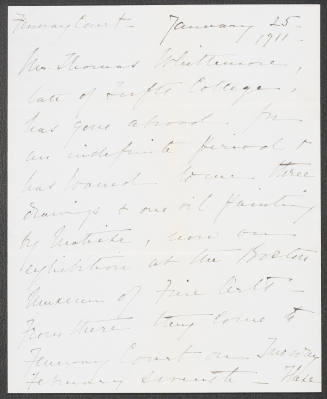 Fenway Court - January 25 -
1911 -
Mr. Thomas Whittemore,
late of Tufts College,
has gone abroad for
an indefinite period &
has loaned to me three
drawings & one oil painting
by Matisse, now on
exhibition at the Boston
Museum of Fine Arts -
From there they come to
Fenway Court on Tuesday
February seventh - These